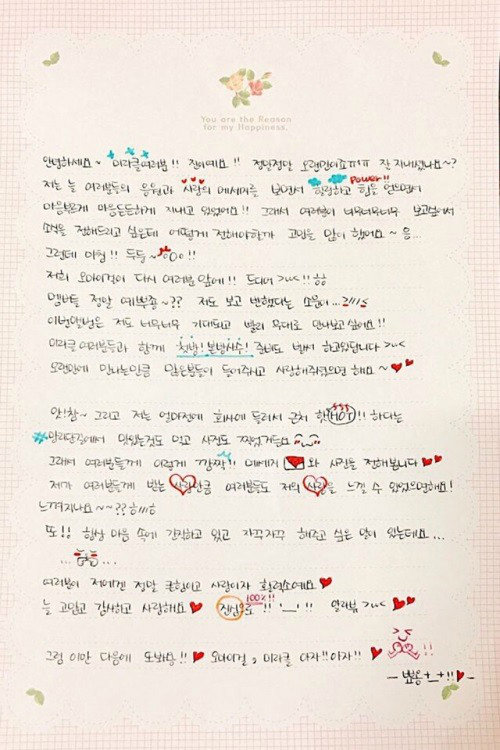 You are the Reason
for my Happiness.
안녕하세요~ 미라클여러분!! 진이예요!! 정말정말 오랜만이죠ㅠㅠㅠ 잘 지내셨나요~?
Power!!
저는 늘 여러분들의 응원과 사랑의 메세지를 보면서 힐링하고 힘을 얻으면서
마음만은게 마음든든하게 지내고 있었어요!! 그래서 여러분이 너무너무너무 보고싶어서
소식을 전해드리고 싶은데 어떻게 전해야할까 고민을 많이 했어요~ 음...
그런데 마침!! 두둥~
저희 오마이걸이 다시 여러분 앞에!! 드디어 >ㅂ<!! ㅎㅎ
멤버들 정말 예쁘죠~?? 저도 보고 반했다는 소문이...
이번앨범은 저도 너무너무 기대되고 빨리 무대로 만나보고 싶어요!!
미라클 여러분들과 함께 첫방! 본방사수! 준비도 벌써 하고있답니다 >ㅂ<
오랜만에 만나는만큼 많은분들이 들어주시고 사랑해주셨으면 해요~
아!참~ 그리고 저는 얼마전에 회사에 들려서 근처 핫HOT!! 하다는
#망리단길에서 맛있는것도 먹고 사진도 찍었거든요
그래서 여러분들께 이렇게 깜짝!! 메세지 와 사진을 전해봅니다
제가 여러분들께 받는 사랑만큼 여러분들도 저의 사랑을 느낄 수 있었으면해요!
느껴지나요~~??
또!! 항상 마음 속에 간직하고 있고 자꾸자꾸 해주고 싶은 말이 있는데요...
여러분이 저에겐 정말 큰힘이고 사랑이자 활력소예요
100%!!
늘 고맙고 감사하고 사랑해요 진심으로!! '_'!! 알라뷰 >ㅂ<
그럼 이만 다음에 또봐용!! 오마이걸, 미라클 아자!!아자!! !!
- 뾰롱+_+!! -